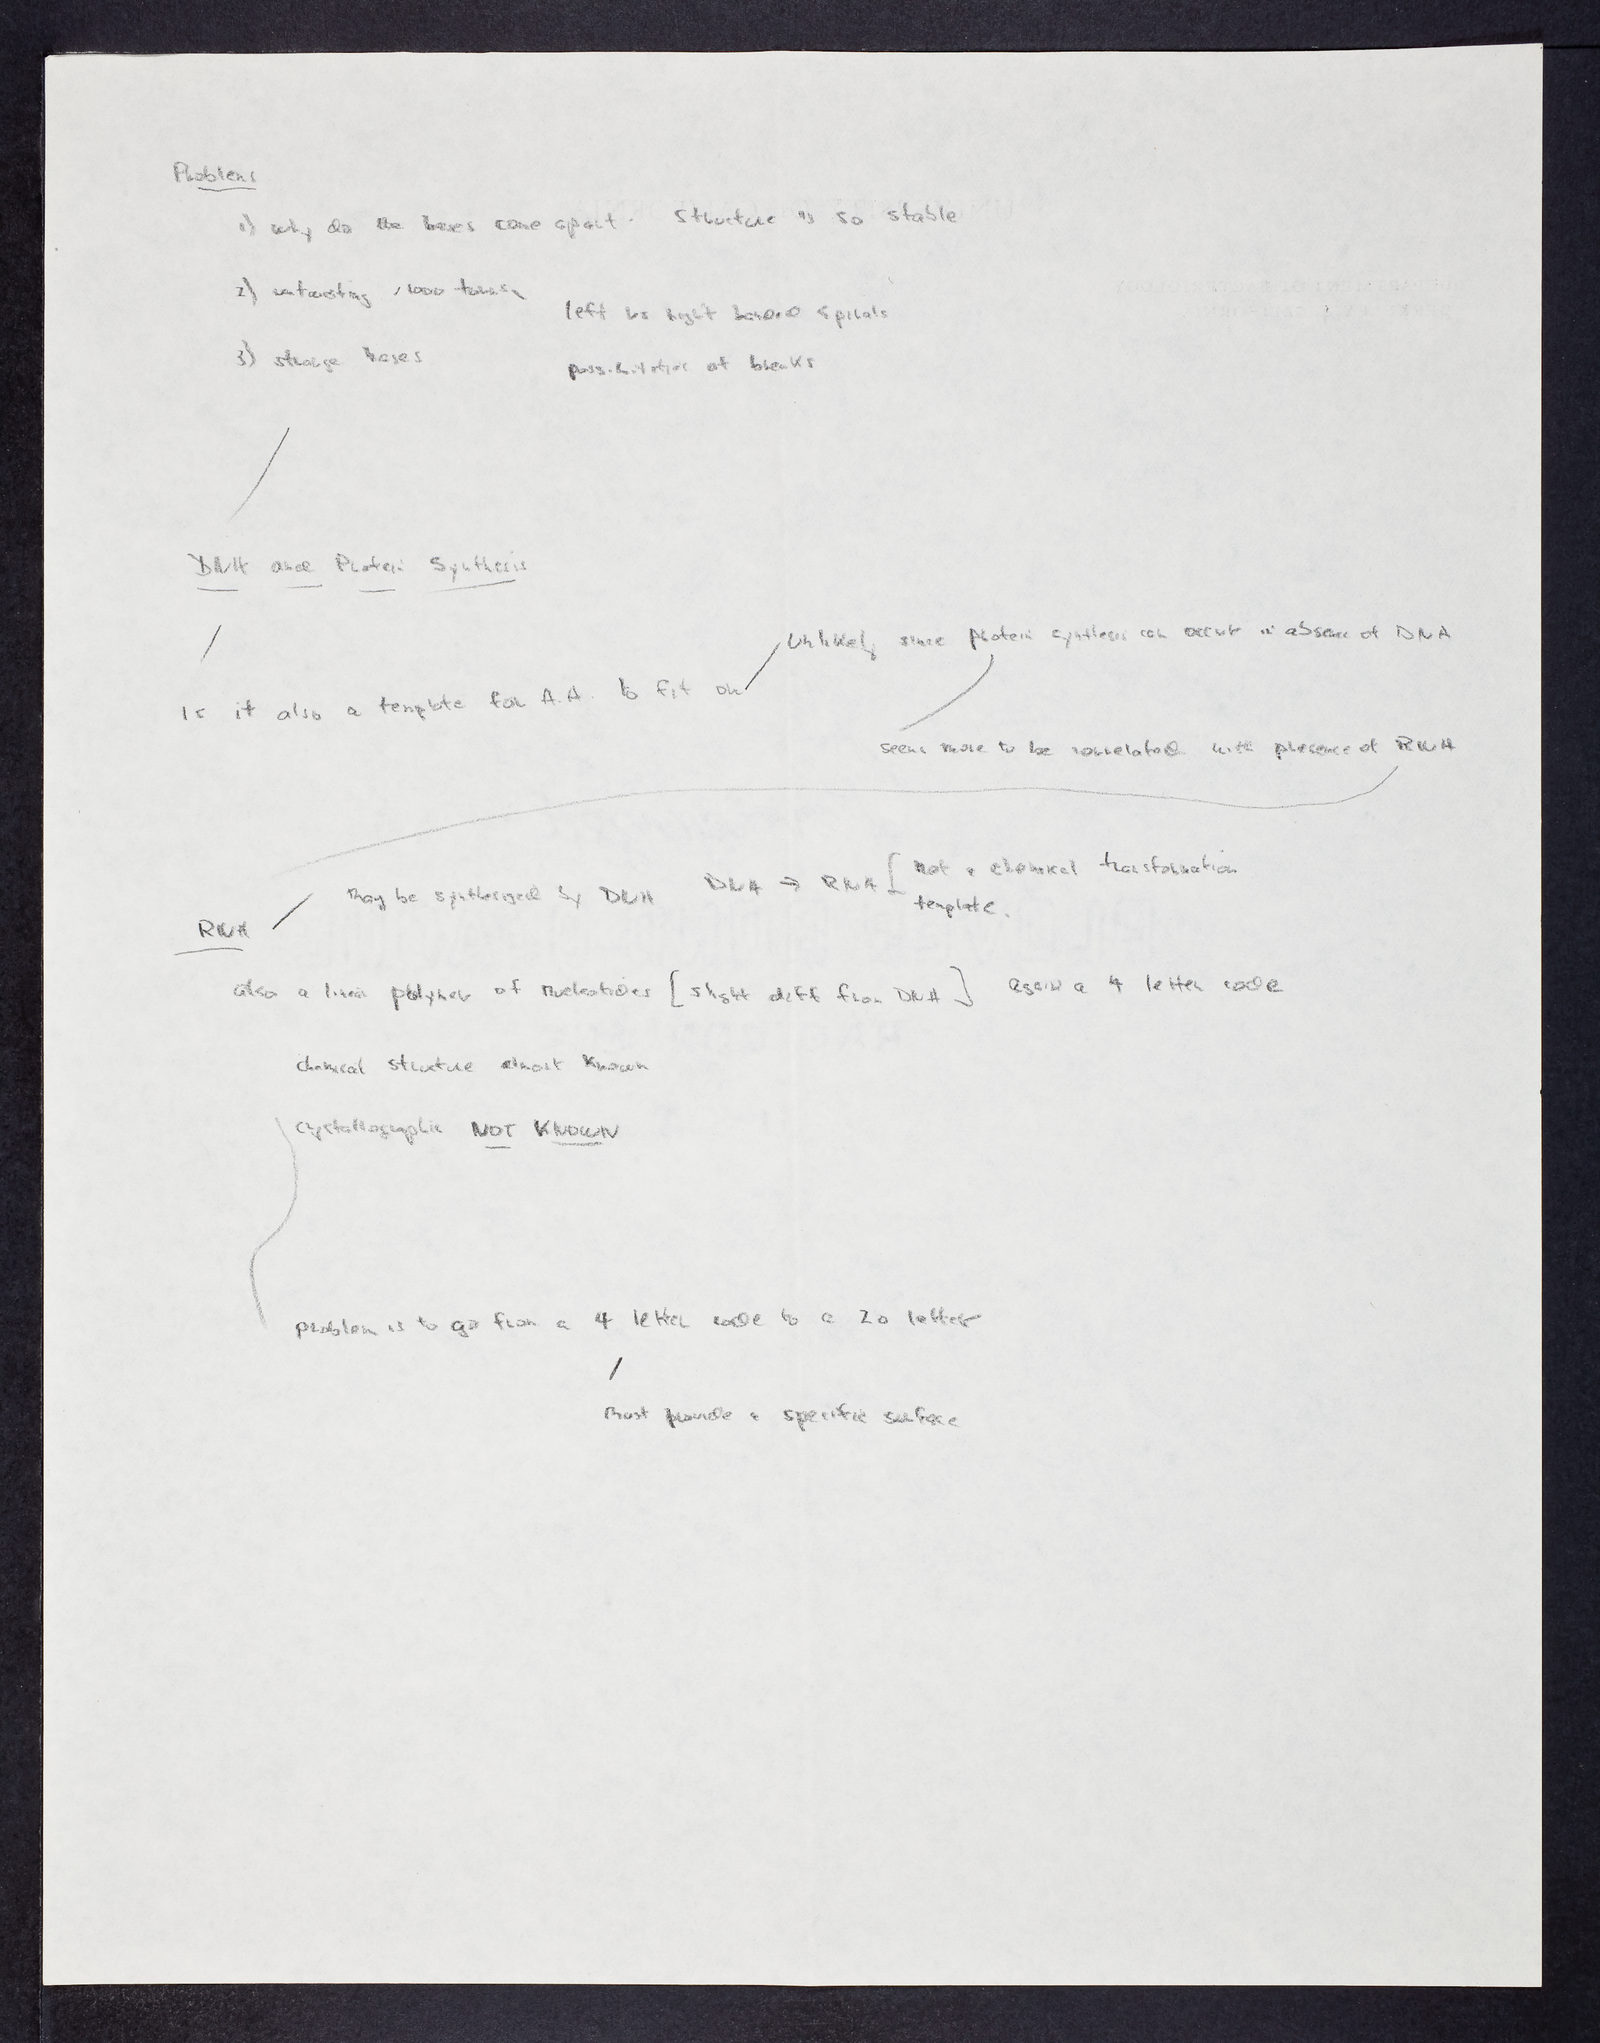 Problems
1) why do the bases come apart. Structure is so stable
2) untwisting, 1000 turns
left vs right handed spirals
3) strange bases
possibilities of breaks
DNA and Protein Synthesis
Unlikely since protein synthesis can occur in absence of DNA
Is it also a template for A.A. to fit on
seems more to be correlated with presence of RNA
may be synthesized by DNA DNA → RNA [ not a chemical transformation
template.
RNA
also a linear polymer of nucleotides [slight diff from DNA] again a 4 letter code
chemical structure almost known
crystallographic NOT KNOWN
problem is to go from a 4 letter code to a 20 letter
Must provide a specific surface